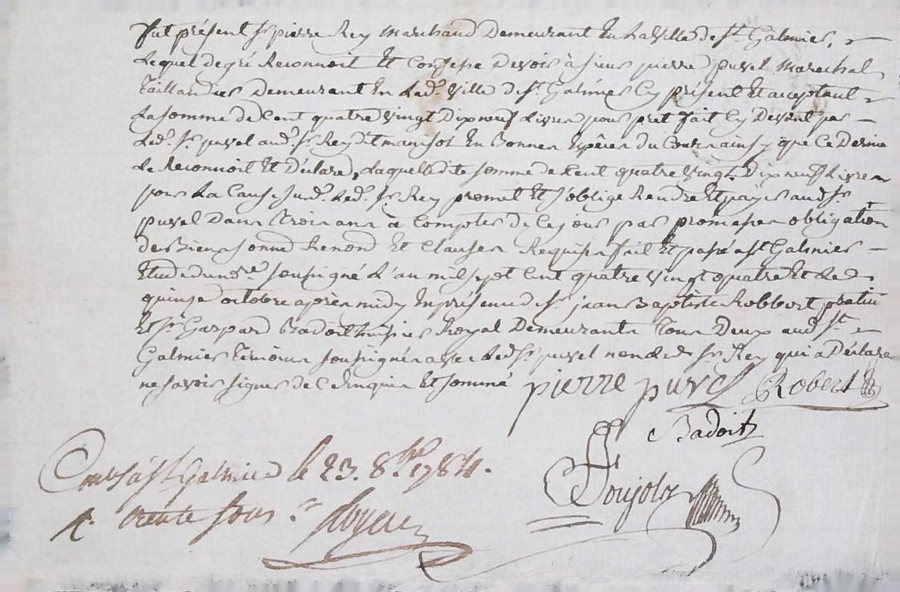 fut présent Sr pierre Rey Marchand Demeurant En la Ville de St. Galmier,
Lequel de gré Reconnoit Et Confesse devoir à sieur pierre puvel Marechal
Taillandier Demeurant En lad. ville de St Galmier Cy présent Et acceptant
La somme de Cent quatre vingt Dix neuf Livres pour pret fait Cy Devant par
Led. Sr. puvel aud. Sr. Rey En Bonnes Espèces du Cour ainsy que Ce Dernier
Le Reconnoit Et Déclare, Laquelle dite somme de Cent quatre vingt Dix neuf Livres
pour La Cause Led. Sr Rey promet Et s'oblige Rendre Et payer aud. Sr
puvel Dans trois ans à Compter de Ce jour par promesse obligation
de Biens Renond Et Clauses Requises fait Et passé a St Galmier
Etude du nore soussigné L'an mil sept Cent quatre vingt quatre Et Le
quinze octobre après midy En présence de Sr jean Baptiste Robbert praticien
Et Sr Gaspard Badoit Royal Demeurants Tous Deux aud. St
Galmier Temoins soussignés avec Led. Sr. puvel non Led. Sr Rey qui a Déclaré
ne savoir signer de Ce Enquis Et sommé pierre puvel Robert
Badoit
Poujolz
Contlé à St galmier le 23. 8bre 1784.
R. trente sous